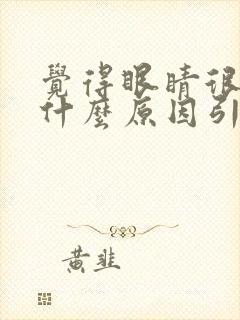 覺得眼睛很
什麼原因引
黃韭